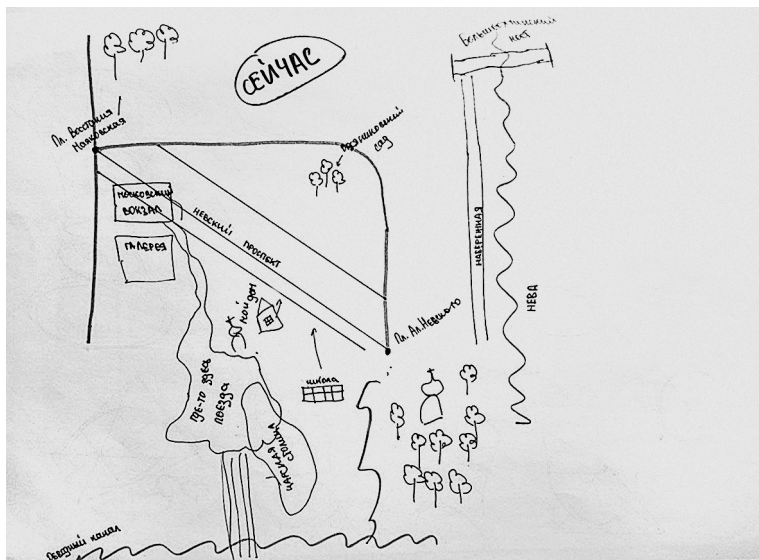 СЕЙЧАС
Большеохтинский
мост
Пл. Восстания
Маяковская
Овсянниковский
сад
Московский
вокзал
Галерея
Невский проспект
Набережная
Нева
Мой дом
Пл. Ал. Невского
школа
Где-то здесь
поезда
Царская
столица
Обводный канал